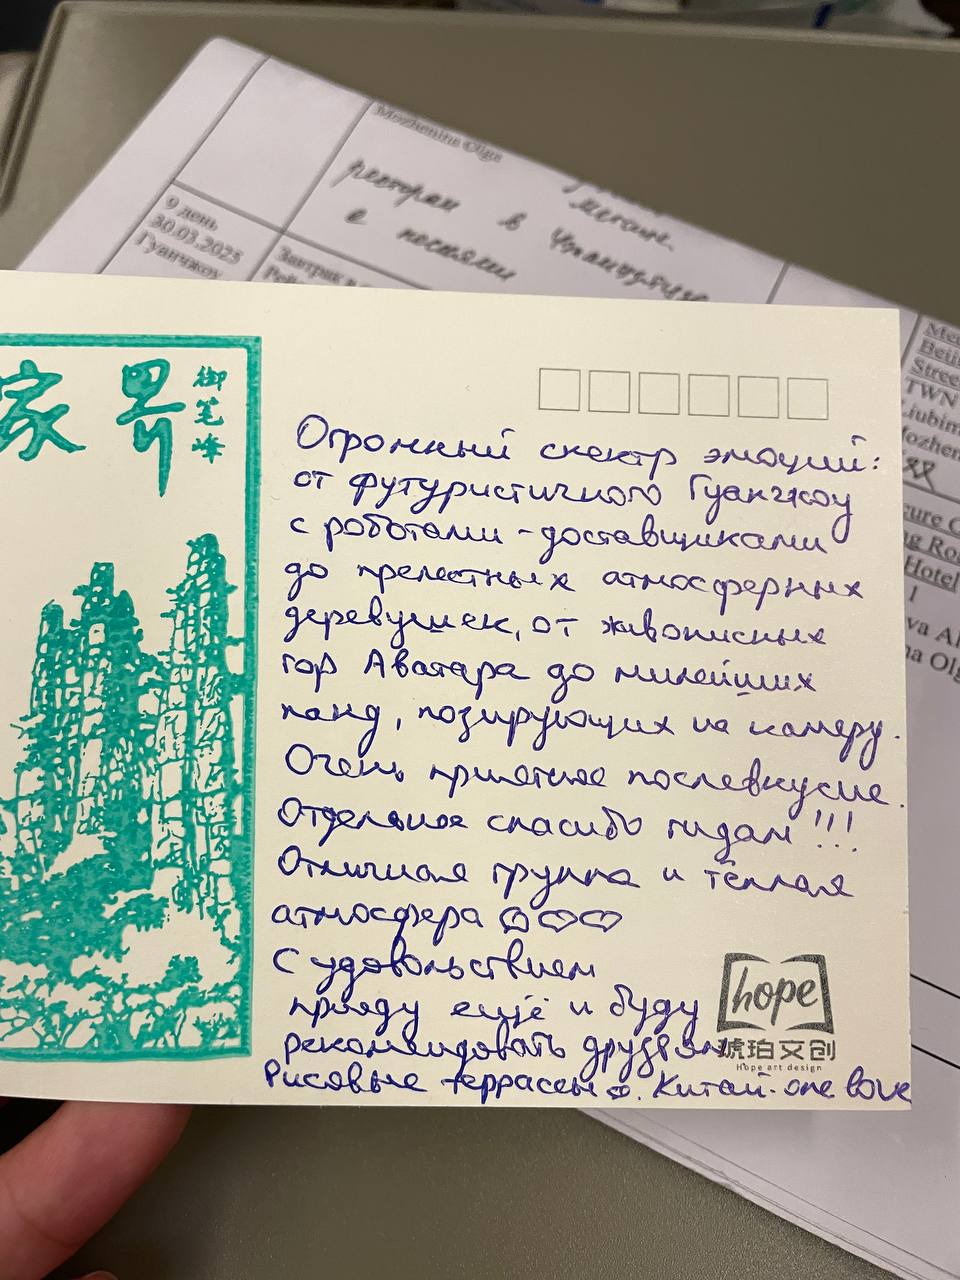 Mozhenina Olga
ресторан в Чжанцзяцзе
с песнями
9 день
30.03.2025
Гуанчжоу
Завтрак
家界
御笔峰
Огромный спектр эмоций:
от футуристичного Гуанчжоу
с роботами-доставщиками
до прелестных атмосферных
деревушек, от живописных
гор Аватара до милейших
панд, позирующих на камеру.
Очень приятное послевкусие.
Отдельное спасибо гидам!!!
Отличная группа и тёплая
атмосфера
С удовольствием
приеду ещё и буду
рекомендовать друзьям
Рисовые террасы. Китай-one love
hope
琥珀文创
Hope art design
Street
TWN
Hotel
1